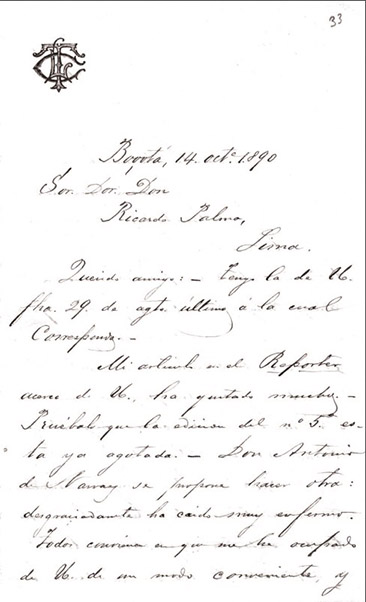 33
Bogotá, 14. octe. 1890
Sor. Dor. Don
Ricardo Palma,
Lima.
Querido amigo: – Tengo la de U.
fha. 29 de agto. último á la cual
Correspondo. –
Mi artículo en el Reporter
acerca d. U., ha gustado mucho, –
Pruébalo que la edición del nº 5º es-
tá ya agotada. – Don Antonio
de Narvaez se propone hacer otra:
desgraciadamte. ha caído muy enfermo.
Todos convienen en que me he ocupado
de U. de un modo conveniente, y